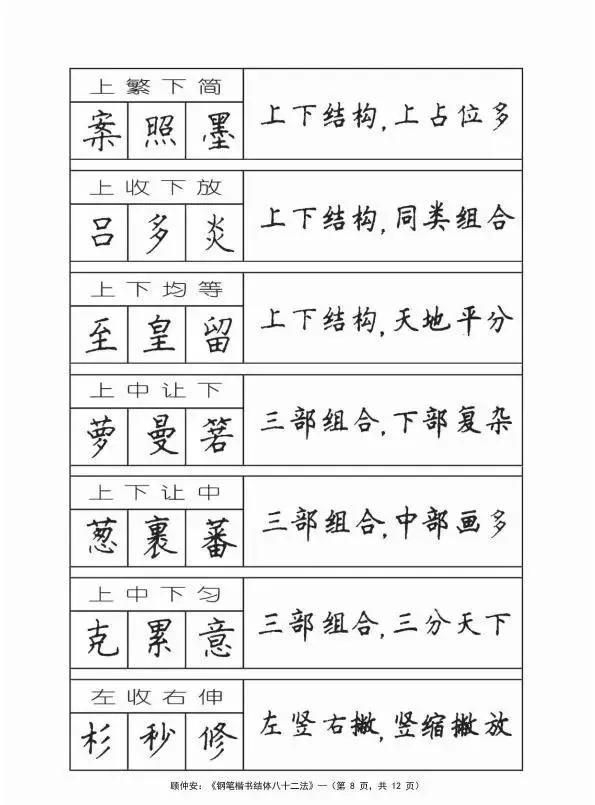 上繁下简
案 照 墨
上下结构,上占位多
上收下放
吕 多 炎
上下结构,同类组合
上下均等
至 皇 留
上下结构,天地平分
上中让下
萝 曼 箬
三部组合,下部复杂
上下让中
葱 裹 蕃
三部组合,中部画多
上中下匀
克 累 意
三部组合,三分天下
左收右伸
杉 秒 修
左竖右撇,竖缩撇放
顾仲安:《钢笔楷书结体八十二法》—(第 8 页,共 12 页)